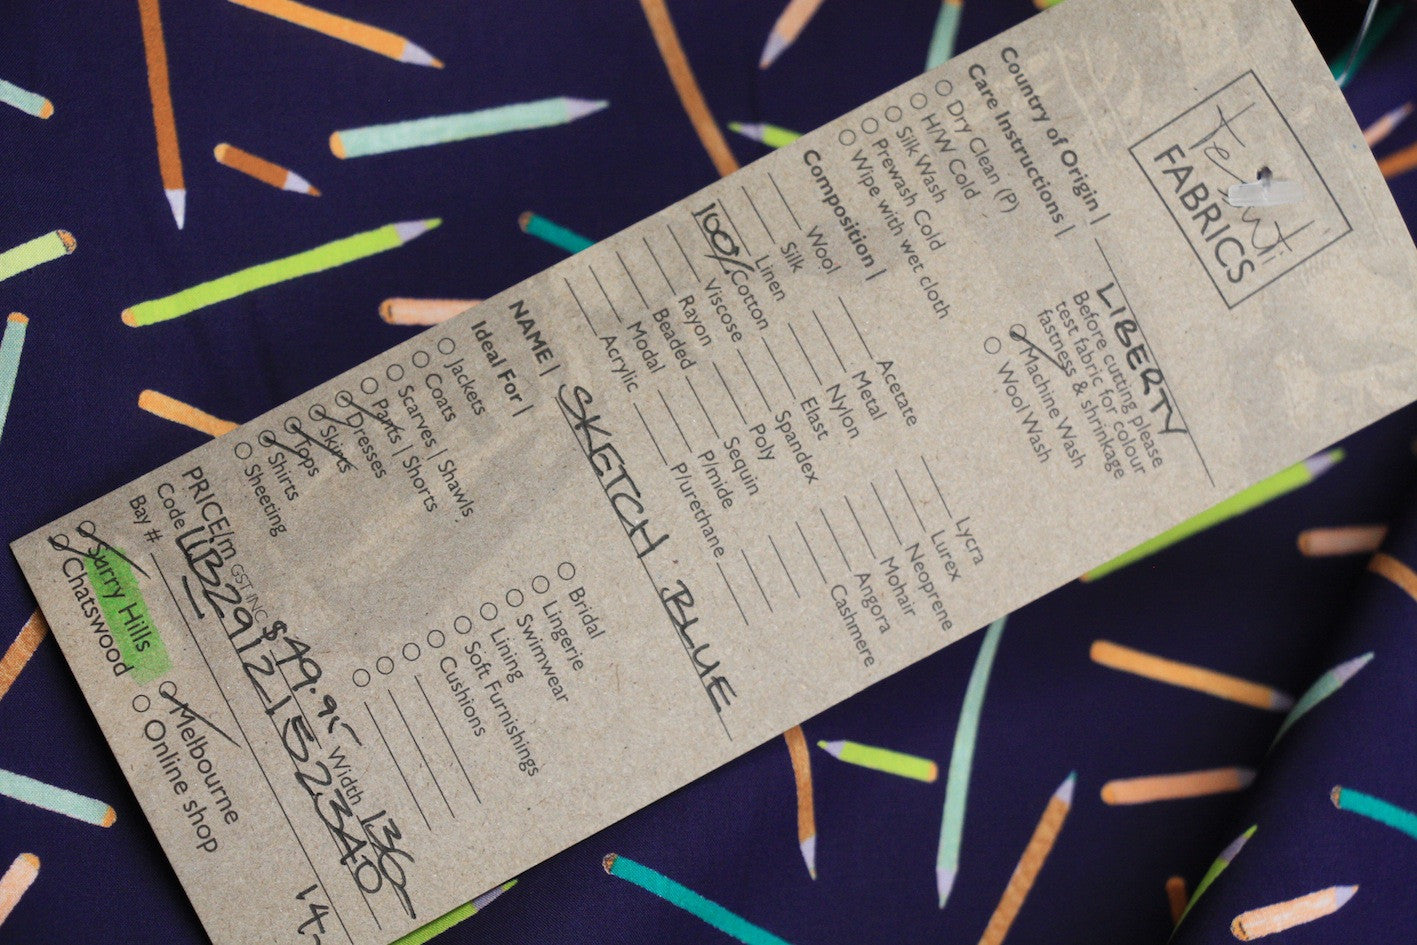 Tessuti
FABRICS
Country of Origin | LIBERTY
Care Instructions |
Before cutting please
test fabric for colour
fastness & shrinkage
Dry Clean (P)
H/W Cold
Silk Wash
Prewash Cold
Wipe with wet cloth
Machine Wash
Wool Wash
Composition |
Wool
Silk
Linen
100% Cotton
Viscose
Rayon
Beaded
Modal
Acrylic
Acetate
Metal
Nylon
Elast
Spandex
Poly
Sequin
P/mide
P/urethane
Lycra
Lurex
Neoprene
Mohair
Angora
Cashmere
NAME | SKETCH BLUE
Ideal For |
Jackets
Coats
Scarves | Shawls
Pants | Shorts
Dresses
Skirts
Tops
Shirts
Sheeting
Bridal
Lingerie
Swimwear
Lining
Soft Furnishings
Cushions
PRICE/m GST INC $49.95 Width 136
Code
Bay #
Surry Hills
Chatswood
Melbourne
Online shop